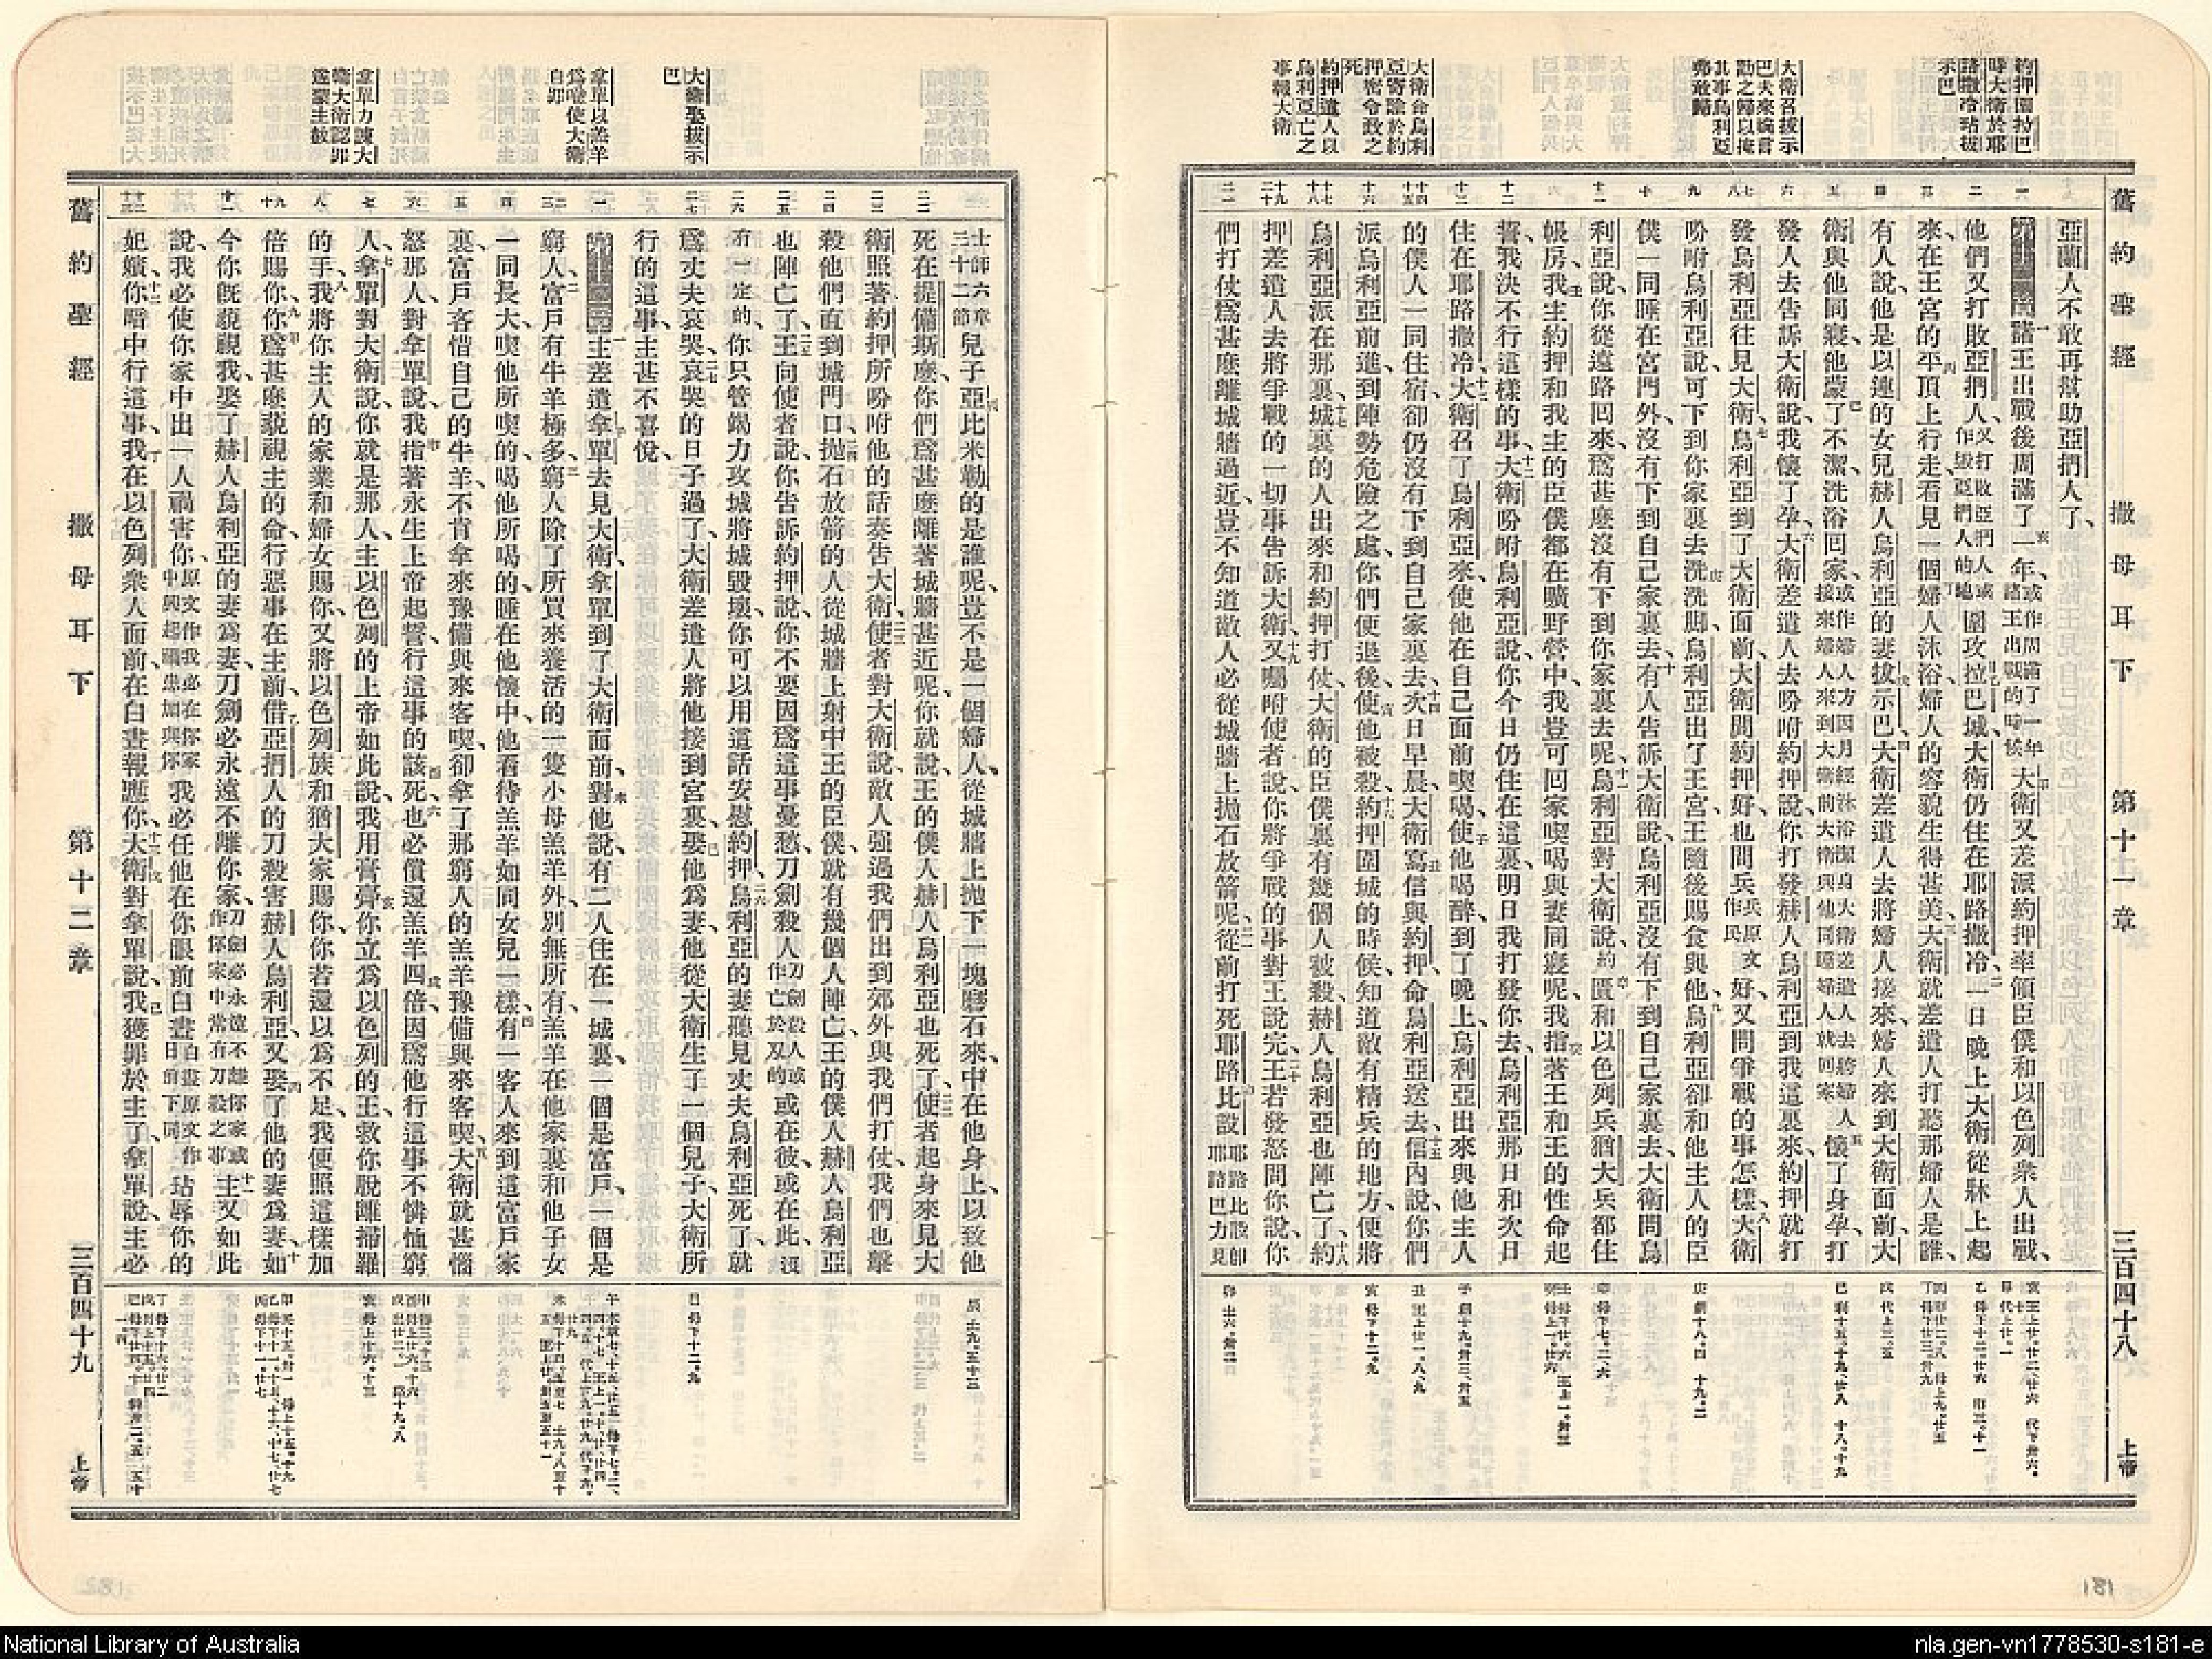 舊約聖經　撒母耳下　第十一章　三百四十八　上帝
大衛召拔示
巴夫來瞞言
勸之歸以掩
其事烏利亞
大衛命烏利
約押遣人以
烏利亞亡之
事報大衛
亞蘭人不敢再幫助亞捫人了、
諸王出戰後周滿了一年、大衛又差派約押率領臣僕和以色列眾人出戰、
他們又打敗亞捫人、圍攻拉巴城、大衛仍住在耶路撒冷、一日晚上大衛從牀上起
來、在王宮的平頂上行走、看見一個婦人沐浴、婦人的容貌生得甚美、大衛就差遣人打聽那婦人是誰、
有人說、他是以連的女兒赫人烏利亞的妻拔示巴、大衛差遣人去將婦人接來、婦人來到大衛面前、大
衛與他同寢、他蒙了不潔、洗浴回家、懷了身孕、打
發人去告訴大衛說、我懷了孕、大衛差遣人去吩咐約押說、你打發赫人烏利亞到我這裏來、約押就打
發烏利亞往見大衛、烏利亞到了大衛面前、大衛問約押好、也問兵好、又問爭戰的事怎樣、大衛
吩咐烏利亞說、可下到你家裏去洗洗脚、烏利亞出了王宮、王隨後賜食與他、烏利亞卻和他主人的臣
僕一同睡在宮門外、沒有下到自己家裏去、有人告訴大衛說、烏利亞沒有下到自己家裏去、大衛問烏
利亞說、你從遠路回來、爲甚麽沒有下到你家裏去呢、烏利亞對大衛說、約匱和以色列兵猶大兵都住
帳房、我主約押和我主的臣僕都在曠野營中、我豈可回家喫喝與妻同寢呢、我指著王和王的性命起
誓、我決不行這樣的事、大衛吩咐烏利亞說、你今日仍住在這裏、明日我打發你去、烏利亞那日和次日
住在耶路撒冷、大衛召了烏利亞來、使他在自己面前喫喝、使他喝醉、到了晚上、烏利亞出來與他主人
的僕人一同住宿、卻仍沒有下到自己家裏去、次日早晨、大衛寫信與約押、命烏利亞送去、信內說、你們
派烏利亞前進、到陣勢危險之處、你們便退後、使他被殺、約押圍城的時候、知道敵有精兵的地方、便將
烏利亞派在那裏、城裏的人出來和約押打仗、大衛的臣僕裏有幾個人被殺、赫人烏利亞也陣亡了、約
押差遣人去將爭戰的一切事告訴大衛、又囑咐使者說、你將爭戰的事對王說完、王若發怒問你說、你
們打仗爲甚麽離城牆過近、豈不知道敵人必從城牆上拋石放箭呢、從前打死耶路比設
大衛娶拔示
巴
拿單以羔羊
爲喻使大衛
自卯
拿單力諫大
衛大衛認罪
遂蒙主赦
士師六章三十二節兒子亞比米勒的是誰呢、豈不是一個婦人、從城牆上拋下一塊磨石來、中在他身上、以致他
死在提備斯麽、你們爲甚麽離著城牆甚近呢、你就說、王的僕人赫人烏利亞也死了、使者起身來見大
衛、照著約押所吩咐他的話奏告大衛、使者對大衛說、敵人強過我們、出到郊外與我們打仗、我們也擊
殺他們、直到城門口、拋石放箭的人從城牆上射中王的臣僕、就有幾個人陣亡、王的僕人赫人烏利亞
也陣亡了、王向使者說、你告訴約押說、你不要因爲這事憂愁、刀劍殺人或在彼或在此、沒
有一定的、你只管竭力攻城、將城毀壞、你可以用這話安慰約押、烏利亞的妻聽見丈夫烏利亞死了、就
爲丈夫哀哭、哀哭的日子過了、大衛差遣人將他接到宮裏、娶他爲妻、他從大衛生了一個兒子、大衛所
行的這事、主甚不喜悅、
主差遣拿單去見大衛、拿單到了大衛面前、對他說、有二人住在一城裏、一個是富戶、一個是
窮人、富戶有牛羊極多、窮人除了所買來養活的一隻小母羔羊外、別無所有、羔羊在他家裏和他子女
一同長大、喫他所喫的、喝他所喝的、睡在他懷中、他看待羔羊如同女兒一樣、有一客人來到這富戶家
裏、富戶吝惜自己的牛羊、不肯拿來豫備與來客喫、卻拿了那窮人的羔羊豫備與來客喫、大衛就甚惱
怒那人、對拿單說、我指著永生上帝起誓、行這事的該死、也必償還羔羊四倍、因爲他行這事不憐恤窮
人、拿單對大衛說、你就是那人、主以色列的上帝如此說、我用膏膏你、立爲以色列的王、救你脫離掃羅
的手、我將你主人的家業和婦女賜你、又將以色列族和猶大家賜你、你若還以爲不足、我便照這樣加
倍賜你、你爲甚麽藐視主的命、行惡事在主前、借亞捫人的刀殺害赫人烏利亞、又娶了他的妻爲妻、如
今你旣藐視我、娶了赫人烏利亞的妻爲妻、刀劍必永遠不離你家、主又如此
說、我必使你家中出一人禍害你、我必任他在你眼前白晝玷辱你的
妃嬪、你暗中行這事、我在以色列衆人面前、在白晝報應你、大衛對拿單說、我獲罪於主了、拿單說、主必
舊約聖經　撒母耳下　第十二章　三百四十九　上帝
181
National Library of Australia
nla.gen-vn1778530-s181-e